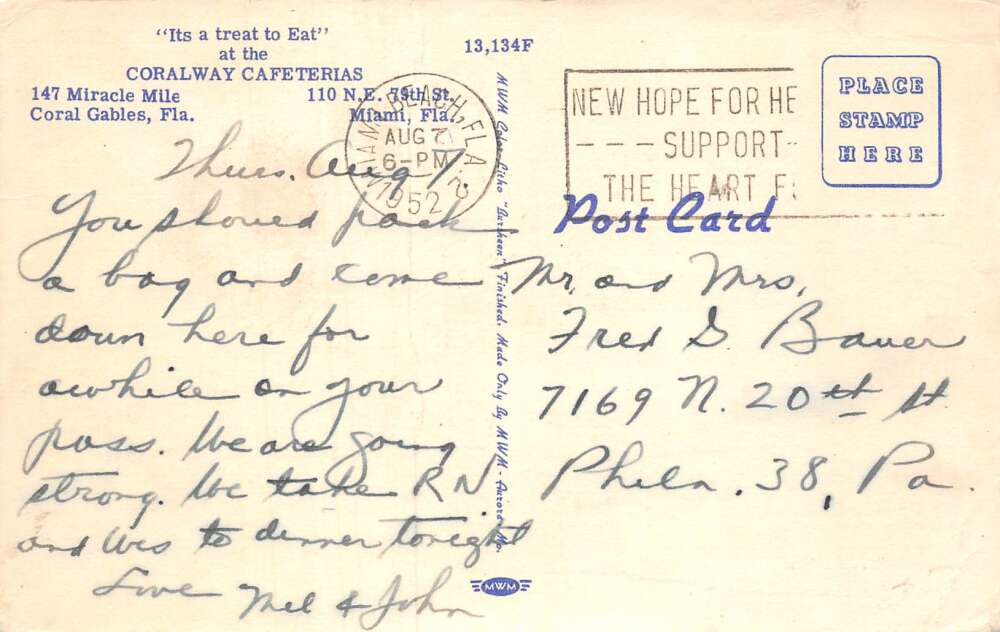 "Its a treat to Eat"
at the
CORALWAY CAFETERIAS
147 Miracle Mile 110 N.E. 79th St.
Coral Gables, Fla. Miami, Fla.
13,134F
MIAMI BEACH, FLA.
AUG 7
6-PM
1952
NEW HOPE FOR HE
--- SUPPORT --
THE HEART F
PLACE
STAMP
HERE
Post Card
Thurs. Aug 7.
You should pack
a bag and come
down here for
awhile on your
pass. We are going
strong. We take RN
and Wes to dinner tonight
Love Mel & John
MWM Color-Litho "Durheen" Finished. Made Only By MWM - Aurora, Mo.
Mr. and Mrs.
Fred G. Bauer
7169 N. 20th St.
Phila. 38, Pa.
MWM